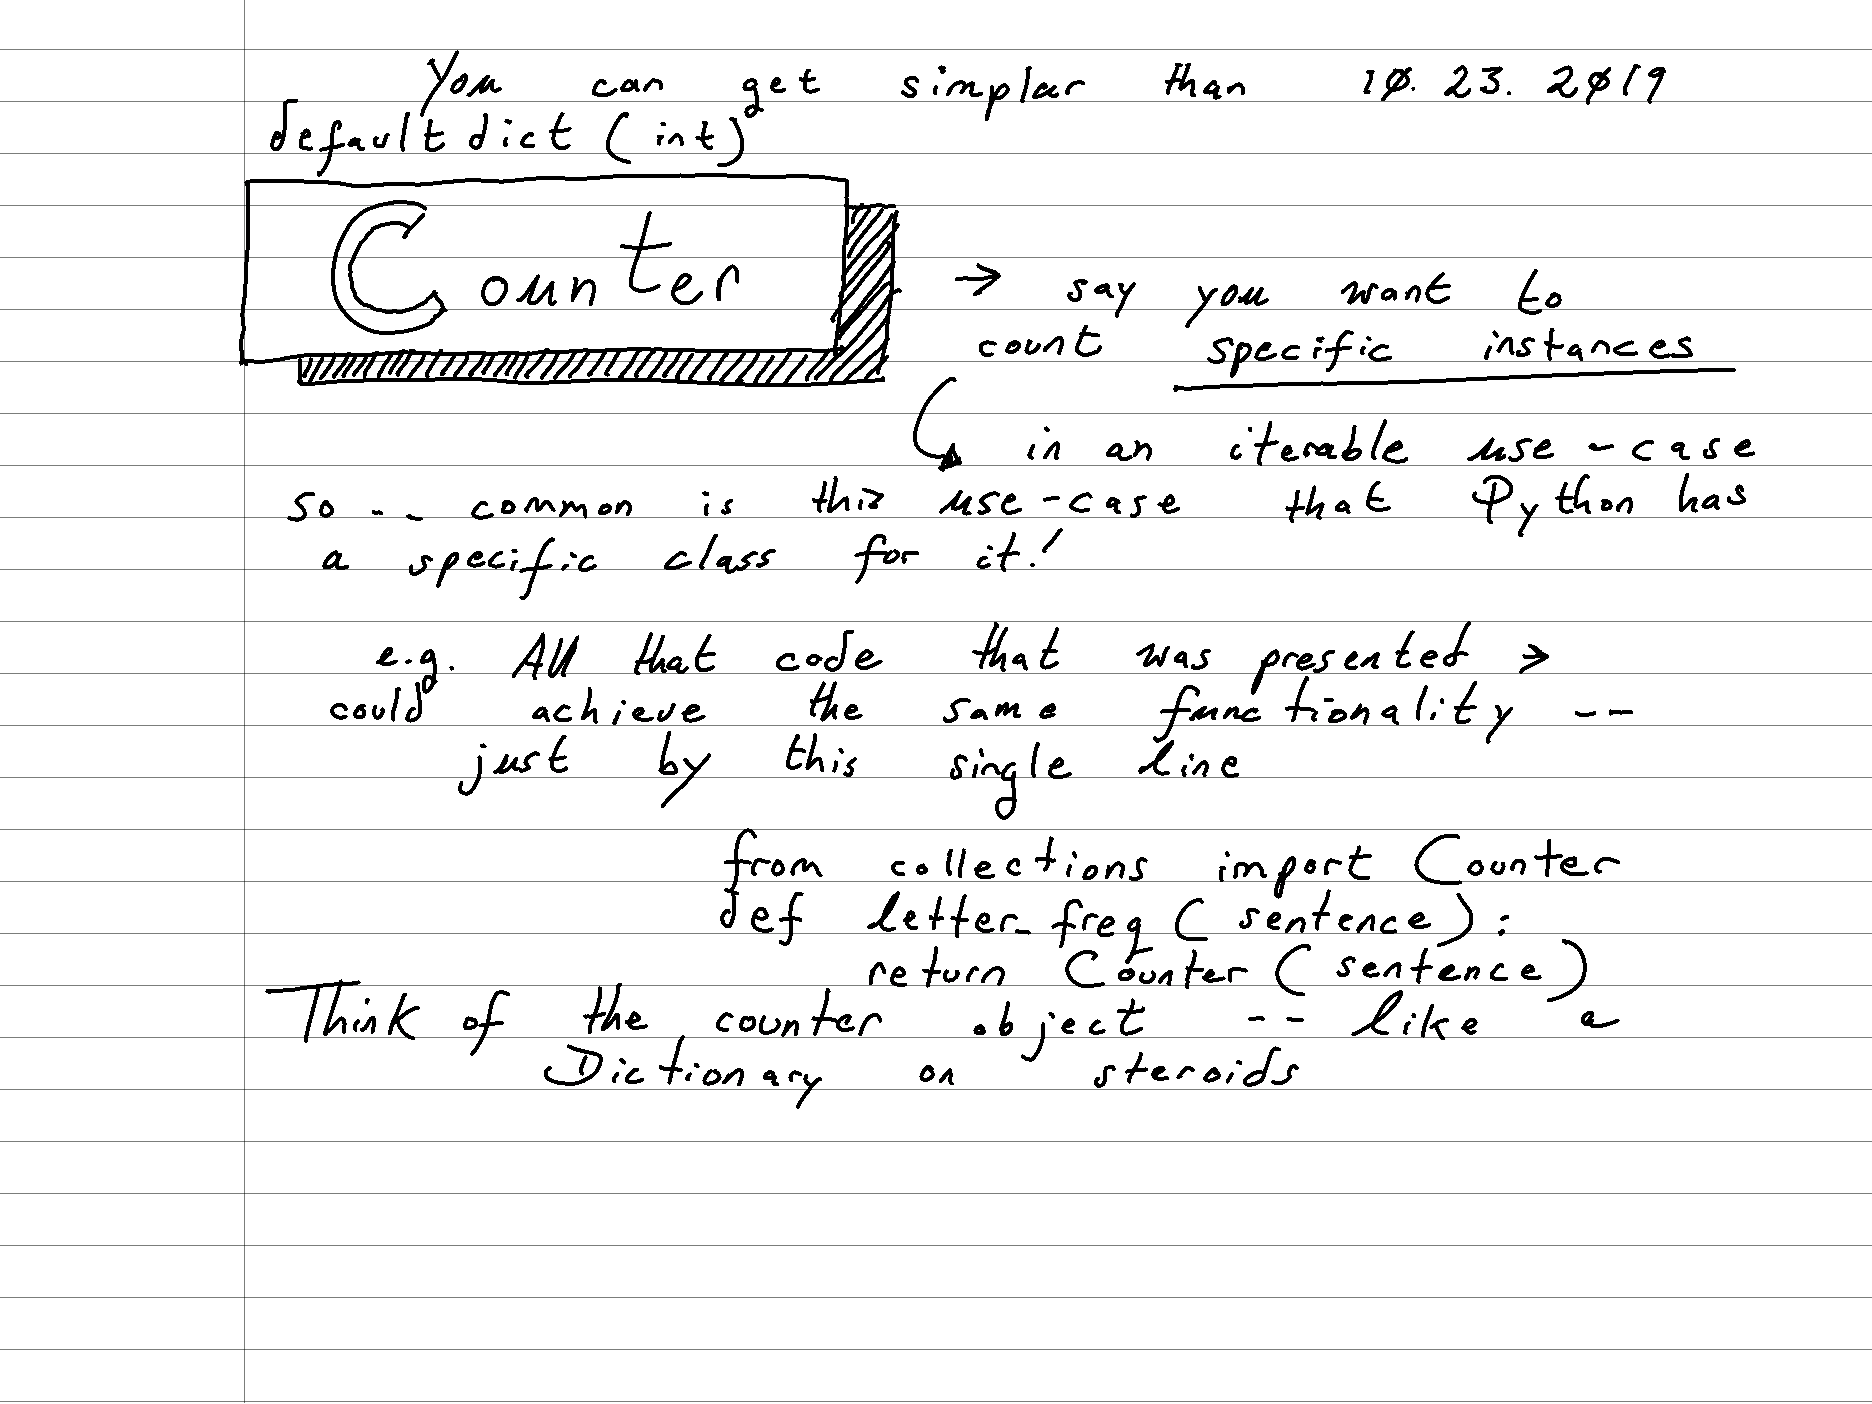 You can get simplar than 10.23.2019
defaultdict (int)
Counter
→ say you want to
count specific instances
in an iterable use-case
so -- common is this use-case that Python has
a specific class for it!
e.g. All that code that was presented >
could achieve the same functionality --
just by this single line
from collections import Counter
def letter_freq (sentence):
return Counter (sentence)
Think of the counter object -- like a
Dictionary on steroids